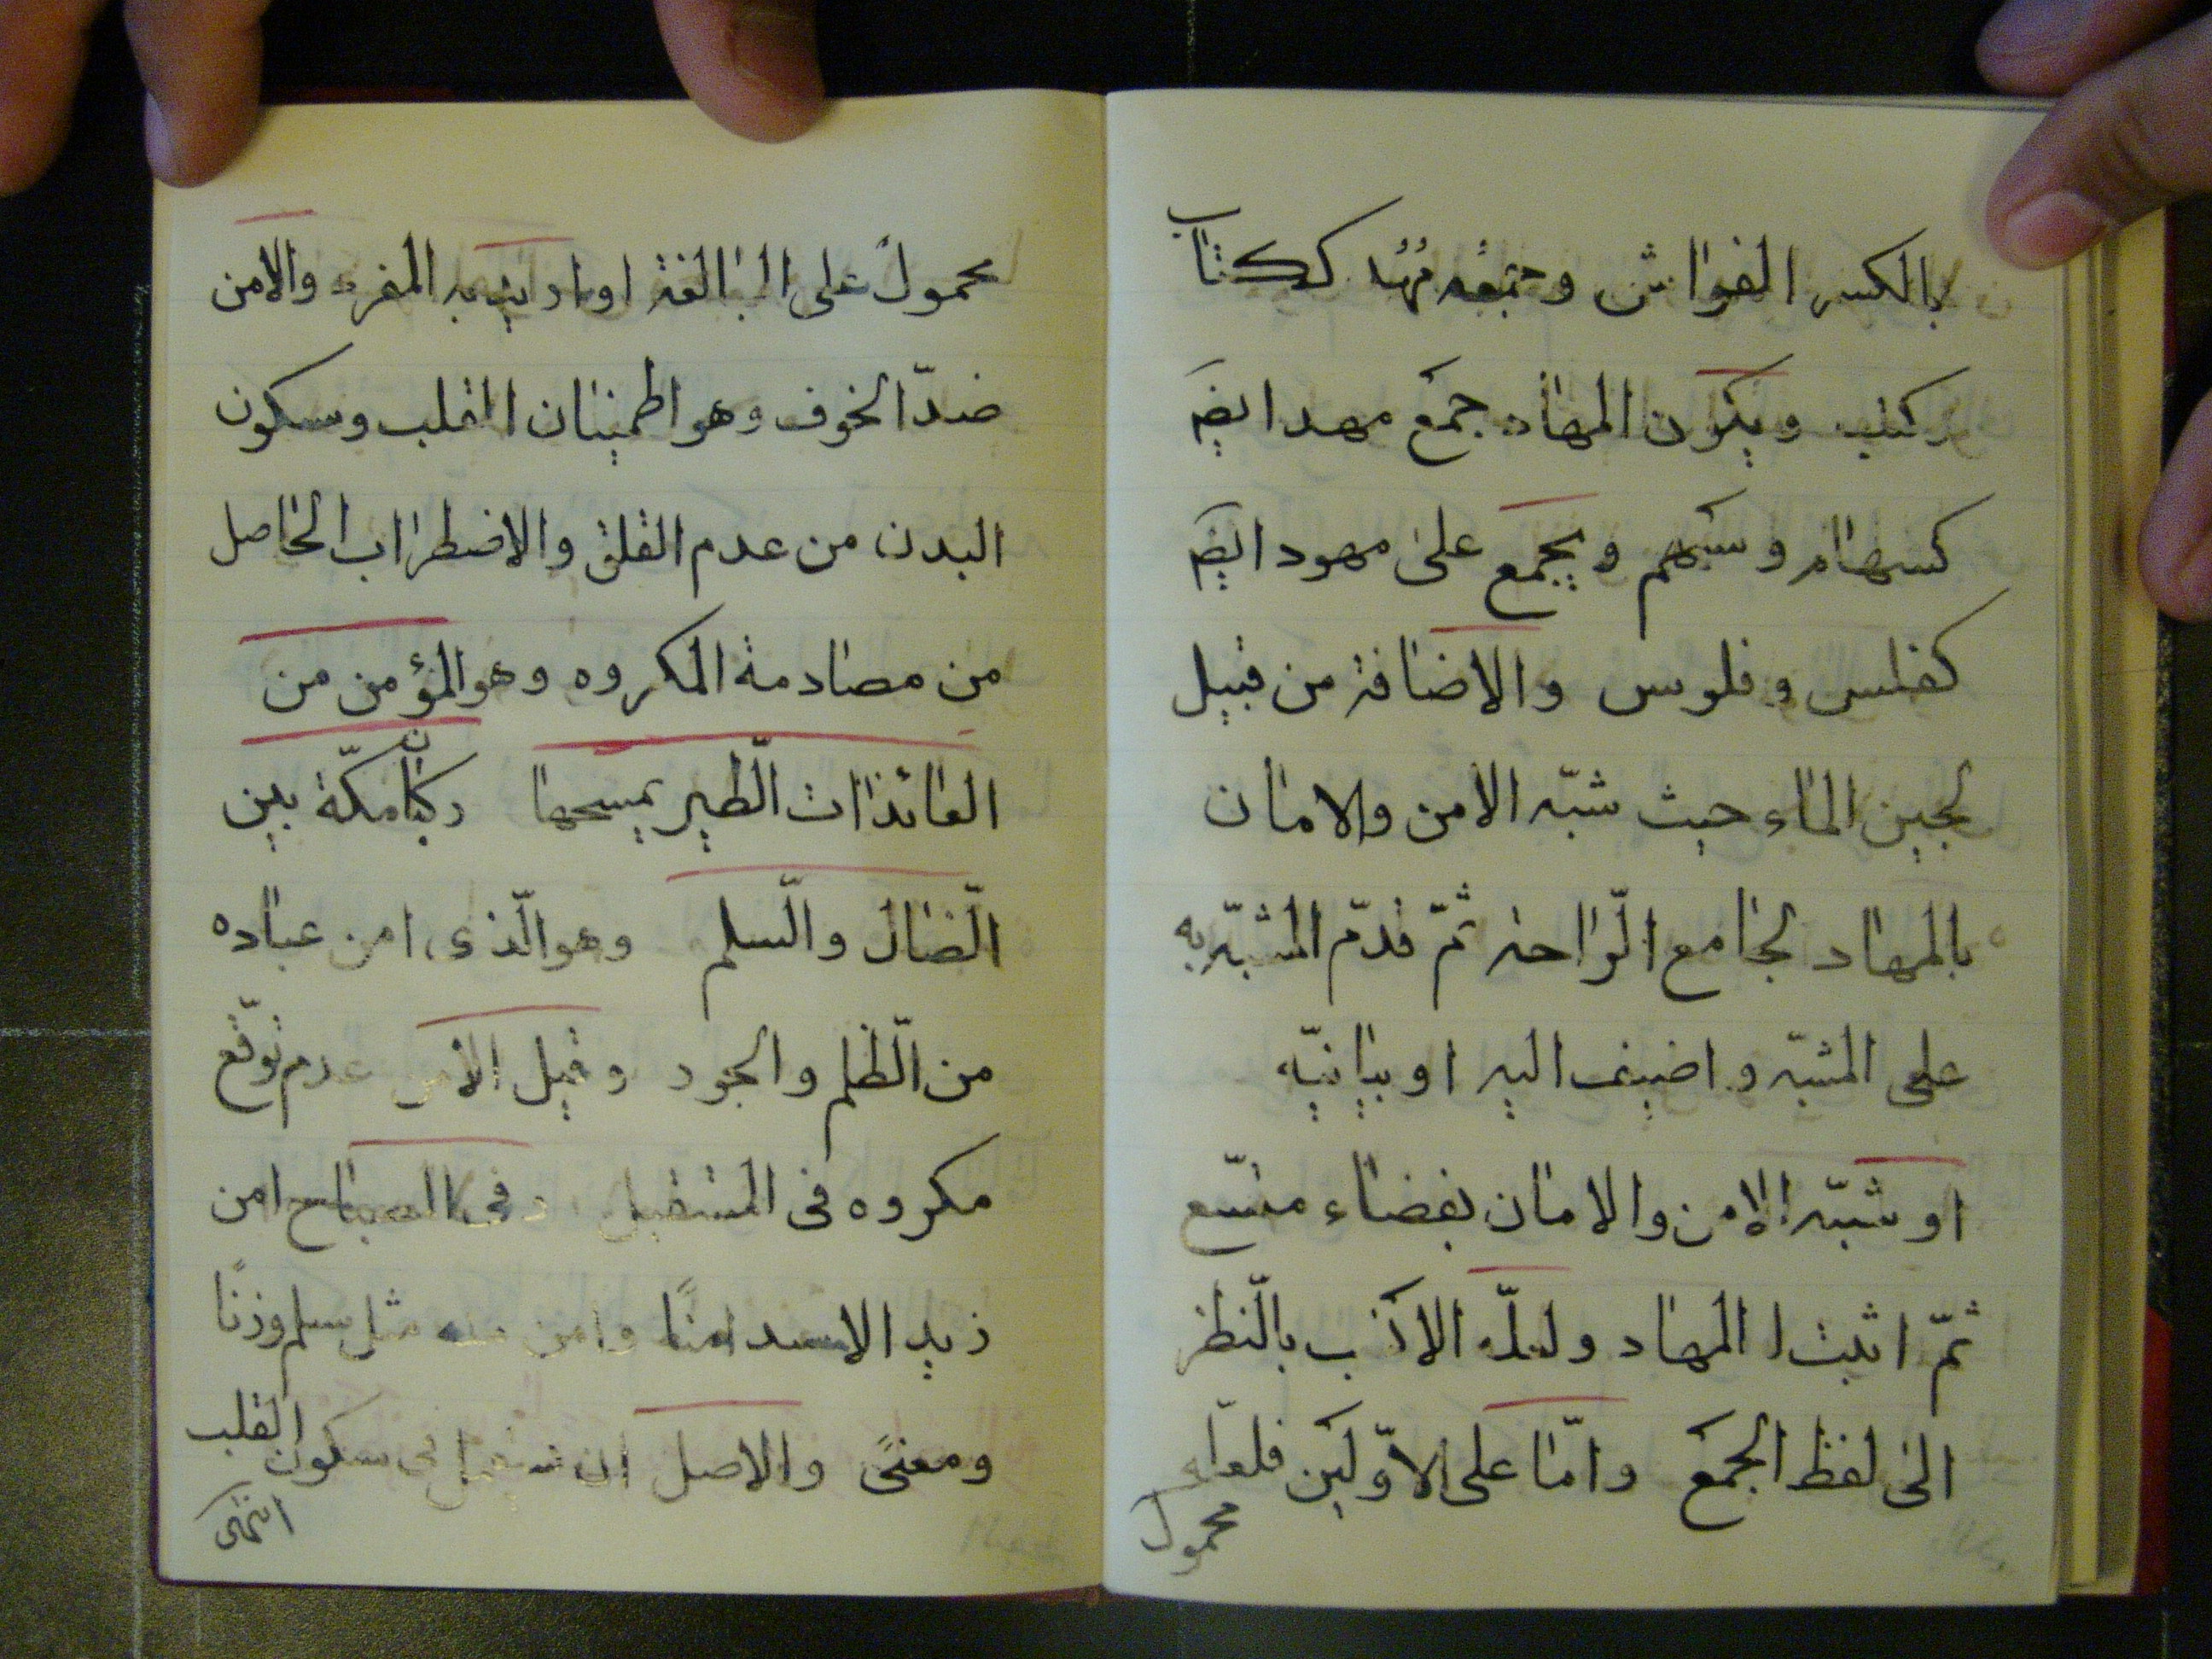 بالكسر الفراش وجمعه مُهُد ككتاب
وكتب ويكون المهاد جمع مهد ايضَ
كسهام وسهم ويجمع على مهود ايضَ
كفلس وفلوس والاضافة من قبيل
لجين الماء حيث شبّه الامن والامان
بالمهاد لجامع الرّاحة ثمّ قدّم المشبّه به
على المشبّه واضيف اليه او بيانيّه
او شبّه الامن والامان بفضاء متّسع
ثمّ اثبت المهاد ولعلّه الانسب بالنّظر
الى لفظ الجمع وامّا على الاوّلين فلعلّه
محمول
محمولٌ على المبالغة او اريد به المفرد والامن
ضدّ الخوف وهو اطمينان القلب وسكون
البدن من عدم القلق والاضطراب الحاصل
من مصادمة المكروه وهو المؤمن من
العائذات الطّير يمسحها ركبان مكّة بين
الضّال والسّلم وهو الّذى امن عباده
من الظّلم والجور وقيل الامن عدم توقّع
مكروه فى المستقبل وفى المصباح امن
زيد الاسد امنًا وامن منه مثل سلم وزنًا
ومعنىً والاصل ان يستعمل فى سكون القلب
انتهى